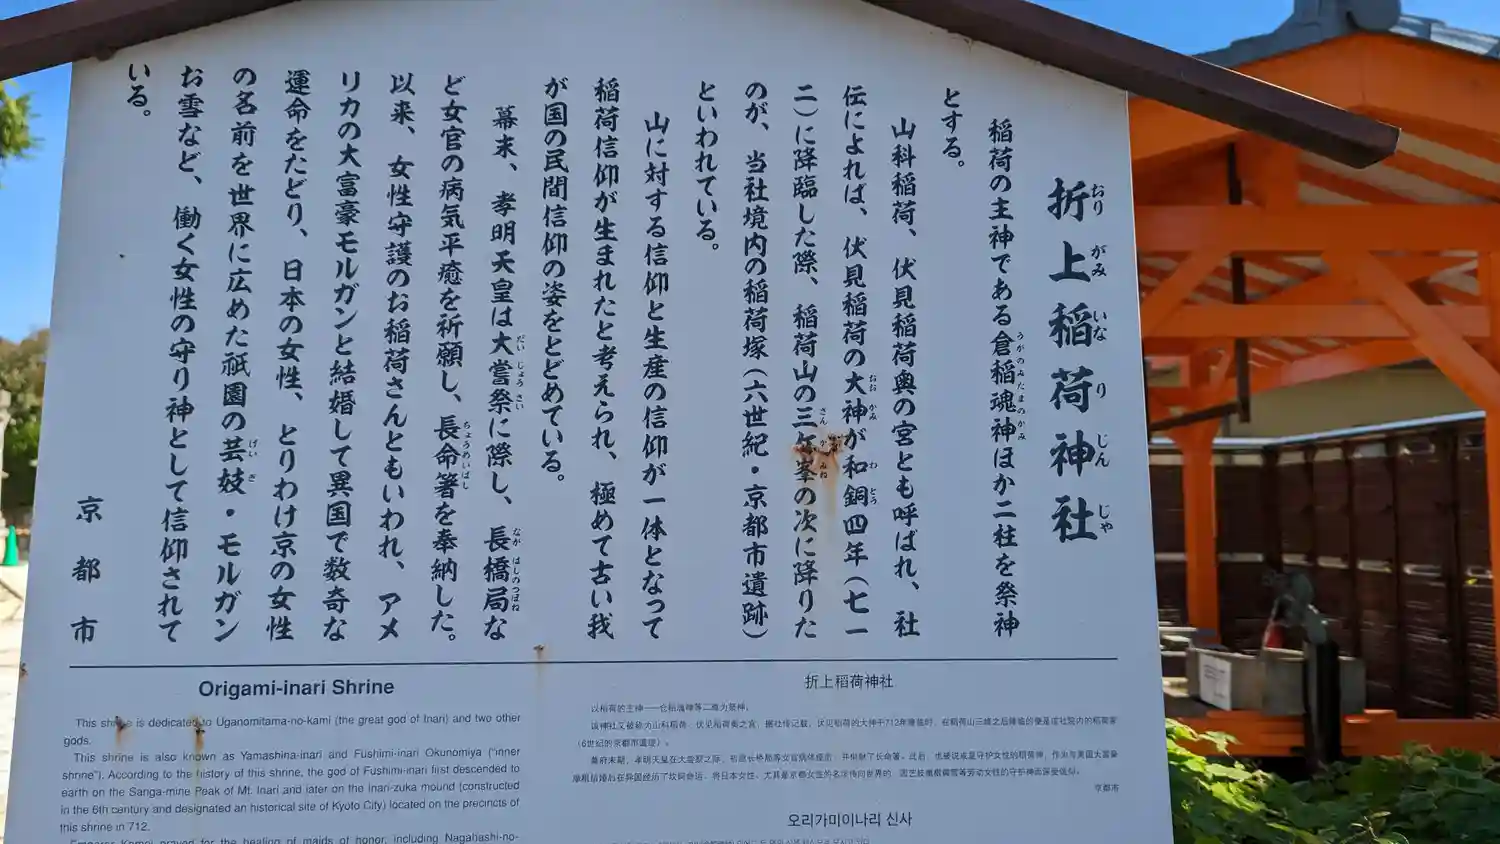 折上稲荷神社
おり がみ いな り じん じゃ
稲荷の主神である倉稲魂神ほか二柱を祭神
うがのみたまのかみ
とする。
山科稲荷、伏見稲荷奥の宮とも呼ばれ、社
伝によれば、伏見稲荷の大神が和銅四年（七一
おお かみ わ どう
二）に降臨した際、稲荷山の三ケ峯の次に降りた
さん か みね
のが、当社境内の稲荷塚（六世紀・京都市遺跡）
といわれている。
山に対する信仰と生産の信仰が一体となって
稲荷信仰が生まれたと考えられ、極めて古い我
が国の民間信仰の姿をとどめている。
幕末、孝明天皇は大嘗祭に際し、長橋局な
だい じょう さい なが はしのつぼね
ど女官の病気平癒を祈願し、長命箸を奉納した。
ちょうめいばし
以来、女性守護のお稲荷さんともいわれ、アメ
リカの大富豪モルガンと結婚して異国で数奇な
運命をたどり、日本の女性、とりわけ京の女性
の名前を世界に広めた祇園の芸妓・モルガン
げい ぎ
お雪など、働く女性の守り神として信仰されて
いる。
京都市
Origami-inari Shrine
This shrine is dedicated to Uganomitama-no-kami (the great god of Inari) and two other
gods.
This shrine is also known as Yamashina-inari and Fushimi-inari Okunomiya ("inner
shrine"). According to the history of this shrine, the god of Fushimi-inari first descended to
earth on the Sanga-mine Peak of Mt. Inari and later on the Inari-zuka mound (constructed
in the 6th century and designated an historical site of Kyoto City) located on the precincts of
this shrine in 712.
Emperor Komei prayed for the healing of maids of honor, including Nagahashi-no-
折上稲荷神社
(6世纪的京都市遗迹)。
京都市
오리가미이나리 신사